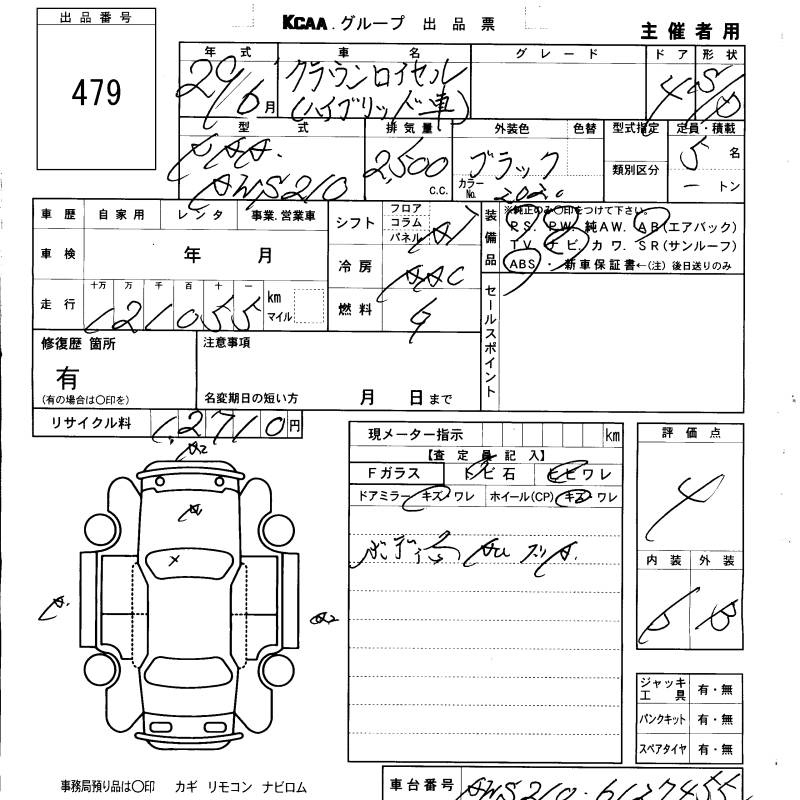 出品番号
479
KCAA.グループ 出品票
主催者用
年式 車名 グレード ドア 形状
29/6月 クラウンロイヤル (ハイブリッド車) 4 S/D
型式 排気量 外装色 色替 型式指定 定員・積載
DAA. AWS210 2,500 c.c. ブラック カラーNo. 類別区分 5名 ートン
車歴 自家用 レンタ 事業.営業車
シフト フロア コラム パネル
装備品 ※純正のみ〇印をつけて下さい。
P.S. P.W. 純AW. AB(エアバック)
T V. ナビ. カワ. SR(サンルーフ)
ABS・新車保証書←(注) 後日送りのみ
車検 年 月
冷房 AAC
走行 十万 万 千 百 十 一
121055 km マイル
燃料
セールスポイント
修復歴 箇所
有
(有の場合は〇印を)
注意事項
名変期日の短い方 月 日まで
リサイクル料 12710円
現メーター指示 km
【査定員記入】
Fガラス トビ石 ヒビワレ
ドアミラー キズ・ワレ ホイール(CP) キズ・ワレ
評価点
4
内装 外装
B B
A2
A
×
A.
A2
ジャッキ工具 有・無
パンクキット 有・無
スペアタイヤ 有・無
事務局預り品は〇印 カギ リモコン ナビロム
車台番号 AWS210-6127455